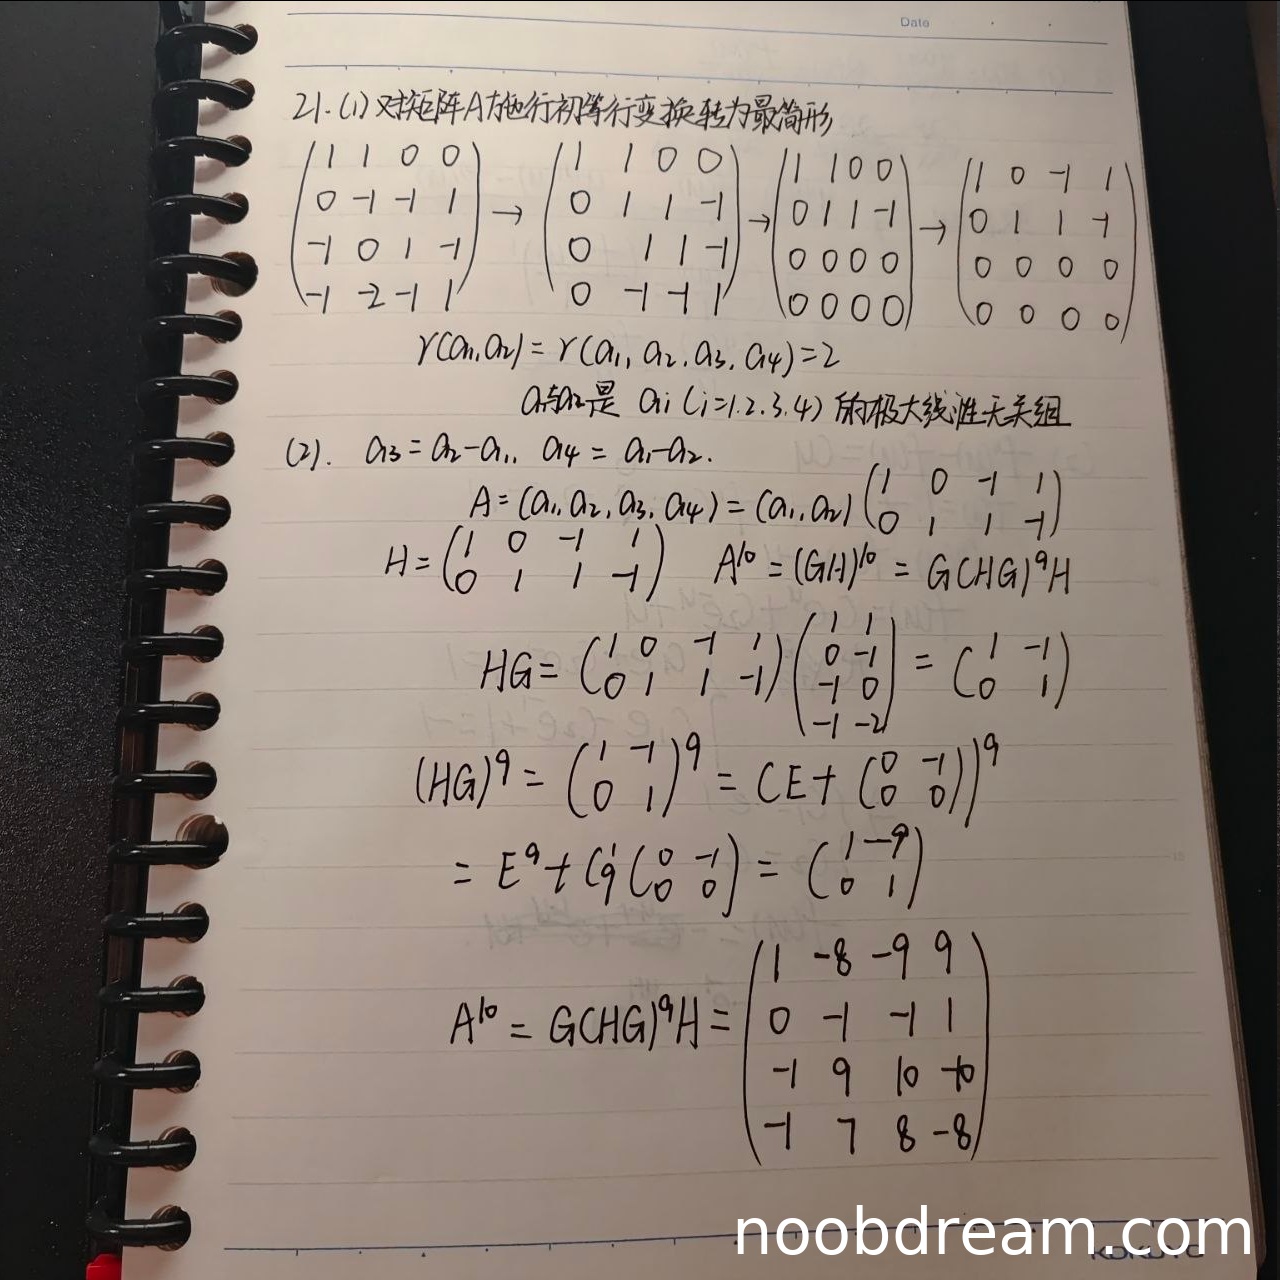 Date
21.(1) 对矩阵A施行初等行变换转为最简形
(1 1 0 0; 0 -1 -1 1; -1 0 1 -1; -1 -2 -1 1) → (1 1 0 0; 0 1 1 -1; 0 1 1 -1; 0 -1 -1 1) → (1 1 0 0; 0 1 1 -1; 0 0 0 0; 0 0 0 0) → (1 0 -1 1; 0 1 1 -1; 0 0 0 0; 0 0 0 0)
r(a1,a2) = r(a1, a2, a3, a4) = 2
a1与a2是 ai (i=1.2.3.4) 的极大线性无关组
(2). a3 = a2-a1, a4 = a1-a2.
A = (a1, a2, a3, a4) = (a1, a2) (1 0 -1 1; 0 1 1 -1)
H = (1 0 -1 1; 0 1 1 -1) A^10 = (GH)^10 = G(HG)^9H
HG = (1 0 -1 1; 0 1 1 -1) (1 1; 0 -1; -1 0; -1 -2) = (1 -1; 0 1)
(HG)^9 = (1 -1; 0 1)^9 = (E + (0 -1; 0 0))^9
= E^9 + C_9^1 (0 -1; 0 0) = (1 -9; 0 1)
A^10 = G(HG)^9H = (1 -8 -9 9; 0 -1 -1 1; -1 9 10 -10; -1 7 8 -8)
noobdream.com
KOKUYO